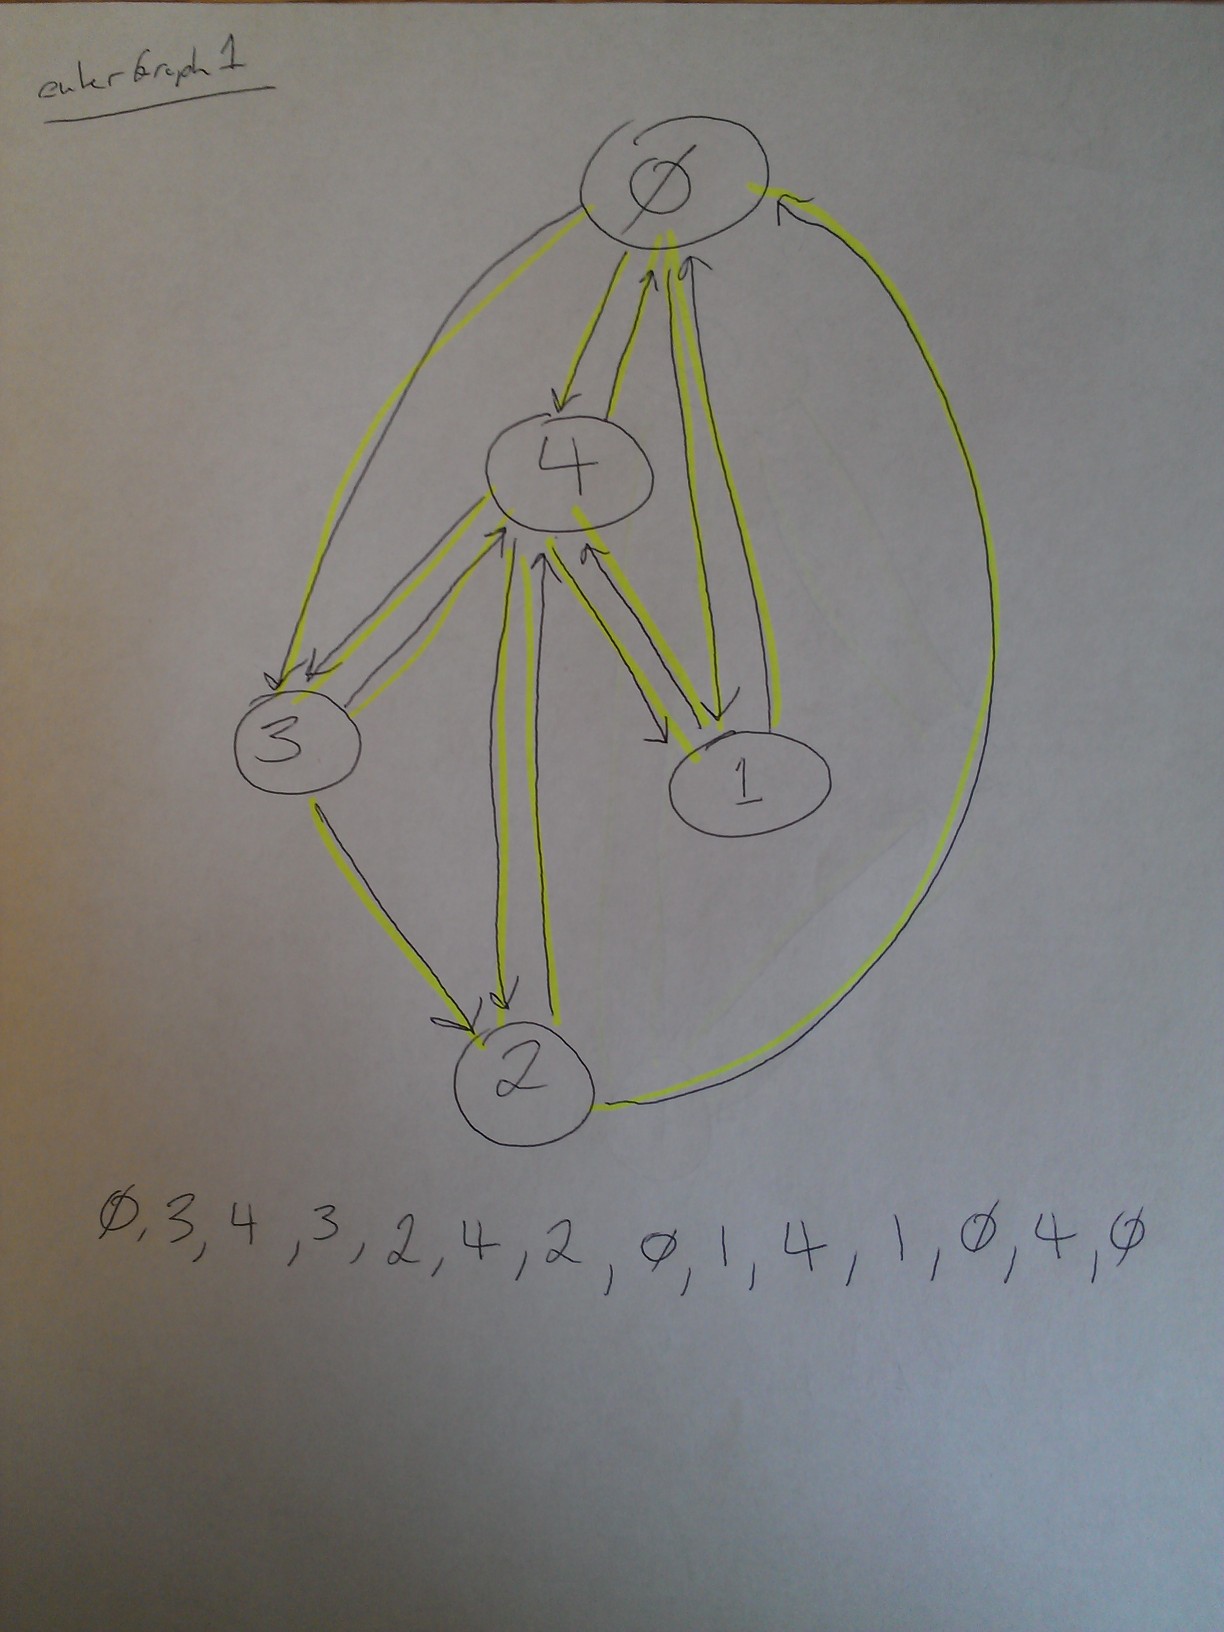 eulerGraph1
0
4
3
1
2
0, 3, 4, 3, 2, 4, 2, 0, 1, 4, 1, 0, 4, 0